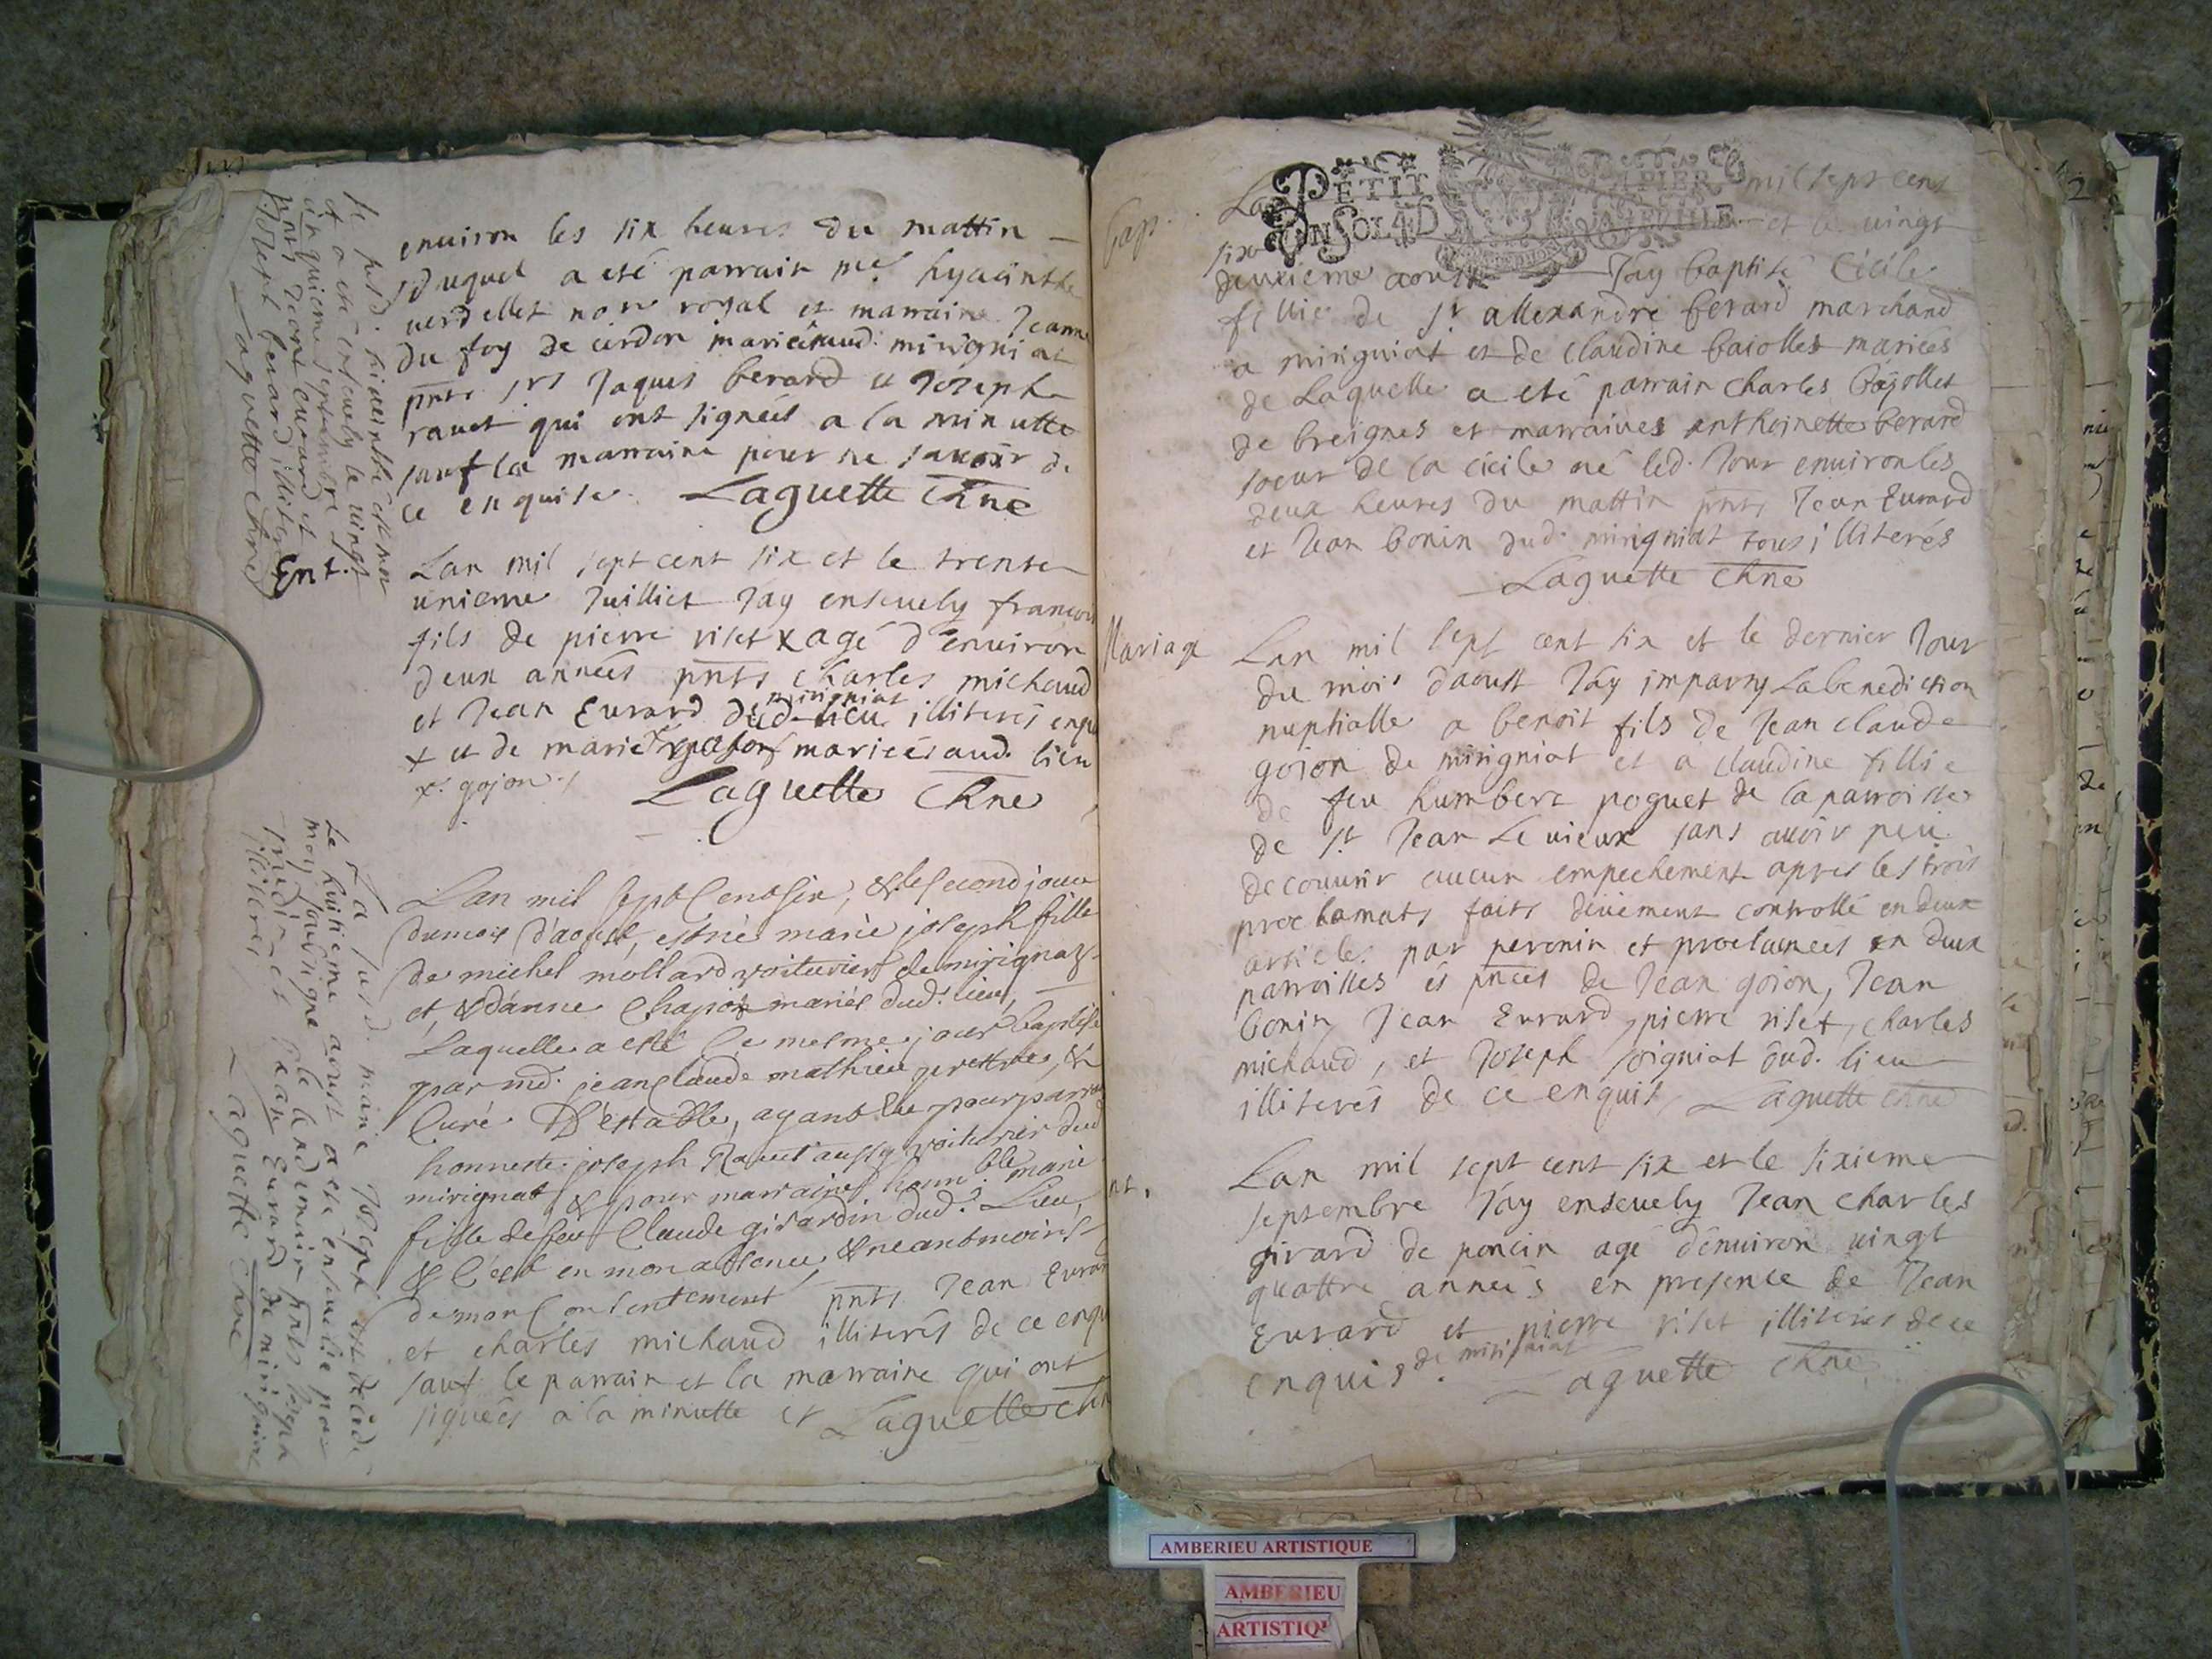 Le susd. hiacinthe est mort
et a esté ensevely le vingt
cinquieme septembre
pnts Jean Evrard et
Joseph berard illiterés
Laguette Chne
environ les six heures du mattin
duquel a eté parrain me hyacinthe
verdellet nore royal et marraine Jeanne
du foy de cerdon mariée aud. mirigniat
pnts srs Jaques berard et Joseph
ravet qui ont signéés a la minutte
sauf la marraine pour ne savoir de
ce enquise. Laguette Chne
Ent.
Lan mil sept cent six et le trente
unieme Juilliet Jay ensevely francois
fils de pierre riset x agé d'environ
deux annéés pnts Charles michaud
et Jean Evrard dud. mirigniat illiterés enquis
x et de marie mariéés aud. lieu
x. gojon ./ Laguette Chne
La susd. marie Joseph est decedé
Le huitieme aoust a eté ensevelie par
moy soussigné le lendemain pnts Joseph
et Jean Evrard de mirigniat
illiterés Laguette Chne
Lan mil sept Cent six, & le second jour
du mois d'aoust, est née marie joseph fille
de michel mollard voiturier de mirignat
et, & d'anne Chapot mariés dud. lieu,
Laquelle a esté le mesme jour baptisé
par md. jean Claude mathieu prettre, &
Curé D'estable, ayant eu pour parrain
honneste joseph Ravet aussy voiturier dud
mirignat, & pour marraine honn.ble marie
fille de feu Claude girardin dud. Lieu,
& C'est en mon absence, & neantmoins
de mon Consentement pnts Jean Evrard
et charles michaud illiterés de ce enquis
sauf le parrain et la marraine qui ont
signéés a la minutte et Laguette Chne
Bap.
PETIT PAPIER
UN SOL 4 D LA FEUILLE
Lan mil sept cent
six et le vingt
deuxieme aoust Jay baptisé Cicile
fillie de sr allexandre berard marchand
a mirigniat et de Claudine baiollet mariéés
de Laquelle a eté parrain Charles bajollet
de breignes et marraines anthoinette berard
soeur de la cicile né led. Jour environ les
deux heures du mattin pnts Jean Evrard
et Jean bonin dud. mirigniat tous illiterés
Laguette Chne
Mariage
Lan mil sept cent six et le dernier Jour
du mois daoust Jay imparty La benediction
nuptialle a benoit fils de Jean claude
gojon de mirigniat et a claudine fillie
de feu humbert poguet de la parroisse
de st Jean Le vieux sans avoir peu
decouvrir aucun empechement apres les trois
proclamats faits düement controllé en deux
article par peronin et proclaméés en deux
parroisses és pnces de Jean gojon, Jean
bonin, Jean Evrard, pierre riset, charles
michaud, et Joseph soigniat dud. lieu
illiterés de ce enquis, Laguette Chne
nt.
Lan mil sept cent six et le sixieme
septembre Jay ensevely Jean Charles
girard de poncin agé d'environ vingt
quattre annéés en presence de Jean
Evrard et pierre riset illiterés de ce
enquis de mirigniat. Laguette Chne
AMBERIEU ARTISTIQUE
AMBERIEU
ARTISTIQU